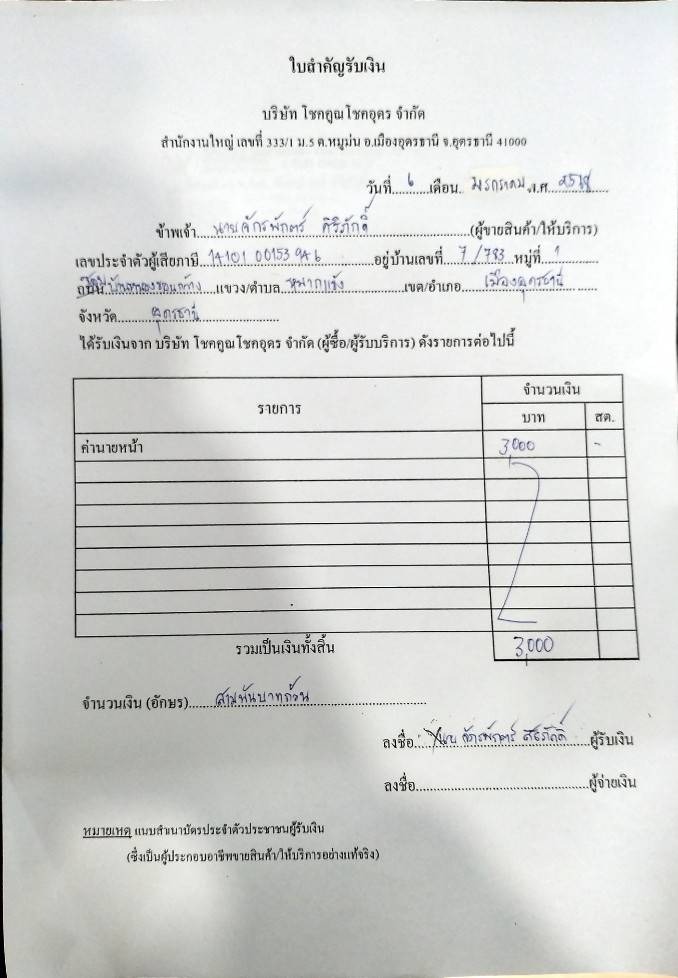 ใบสำคัญรับเงิน
บริษัท โชคคูณโชคอุดร จำกัด
สำนักงานใหญ่ เลขที่ 333/1 ม.5 ต.หมูม่น อ.เมืองอุดรธานี จ.อุดรธานี 41000
วันที่ 6 เดือน มกราคม พ.ศ.
ข้าพเจ้า นายจักรพักตร์ ศิริภักดิ์ (ผู้ขายสินค้า/ให้บริการ)
เลขประจำตัวผู้เสียภาษี 14101 00153 946 อยู่บ้านเลขที่ 7/783 หมู่ที่ 1
ถนน แขวง/ตำบล หมากแข้ง เขต/อำเภอ เมืองอุดรธานี
จังหวัด อุดรธานี
ได้รับเงินจาก บริษัท โชคคูณโชคอุดร จำกัด (ผู้ซื้อ/ผู้รับบริการ) ดังรายการต่อไปนี้
รายการ จำนวนเงิน
บาท สต.
ค่านายหน้า 3,000 -
รวมเป็นเงินทั้งสิ้น 3,000
จำนวนเงิน (อักษร) สามพันบาทถ้วน
ลงชื่อ นาย จักรพักตร์ ศิริภักดิ์ ผู้รับเงิน
ลงชื่อ ผู้จ่ายเงิน
หมายเหตุ แนบสำเนาบัตรประจำตัวประชาชนผู้รับเงิน
(ซึ่งเป็นผู้ประกอบอาชีพขายสินค้า/ให้บริการอย่างแท้จริง)